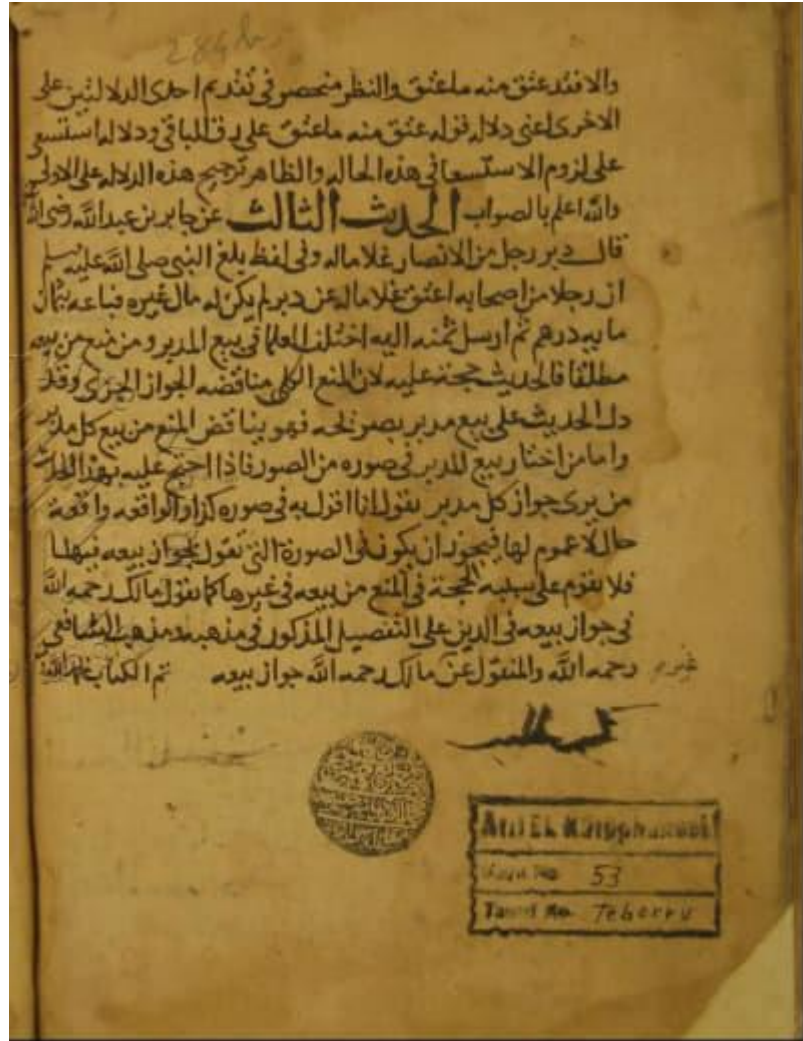 284b
والا فقد عتق منه ماعتق والنظر منحصر فى تقديم احدى الدلالتين على
الاخرى اعنى دلاله قوله عتق منه ماعتق على رق الباقى ودلاله استسعى
على لزوم الاستسعا فى هذه الحاله والظاهر ترجيح هذه الدلاله على الاولى
والله اعلم بالصواب الحديث الثالث عن جابر بن عبد الله رضى الله
قال دبر رجل من الانصار غلاما له وفى لفظ بلغ النبى صلى الله عليه وسلم
ان رجلا من اصحابه اعتق غلاما له عن دبر لم يكن له مال غيره فباعه بثمان
مايه درهم ثم ارسل ثمنه اليه اختلف العلما فى بيع المدبر ومن منع من بيعه
مطلقا فالحديث حجة عليه لان المنع الكلى مناقضه الجواز الجزى وقد
دل الحديث على بيع مدبر بصريحه فهو يناقض المنع من بيع كل مدبر
واما من اختار بيع المدبر فى صوره من الصور فاذا احتج عليه بهذا الحديث
من يرى جواز كل مدبر يقول انا اقول به فى صوره كذا والواقعه واقعة
حال لا عموم لها فيجوز ان يكون فى الصورة التى نقول بجواز بيعه فيها
فلا تقوم على الحجة فى المنع من بيعه فى غيرها كما يقول مالك رحمه الله
فى جواز بيعه فى الدين على التفصيل المذكور فى مذهبه ومذهب الشافعى
رحمه الله والمنقول عن مالك رحمه الله جواز بيعه تم الكتاب
53
Teberru